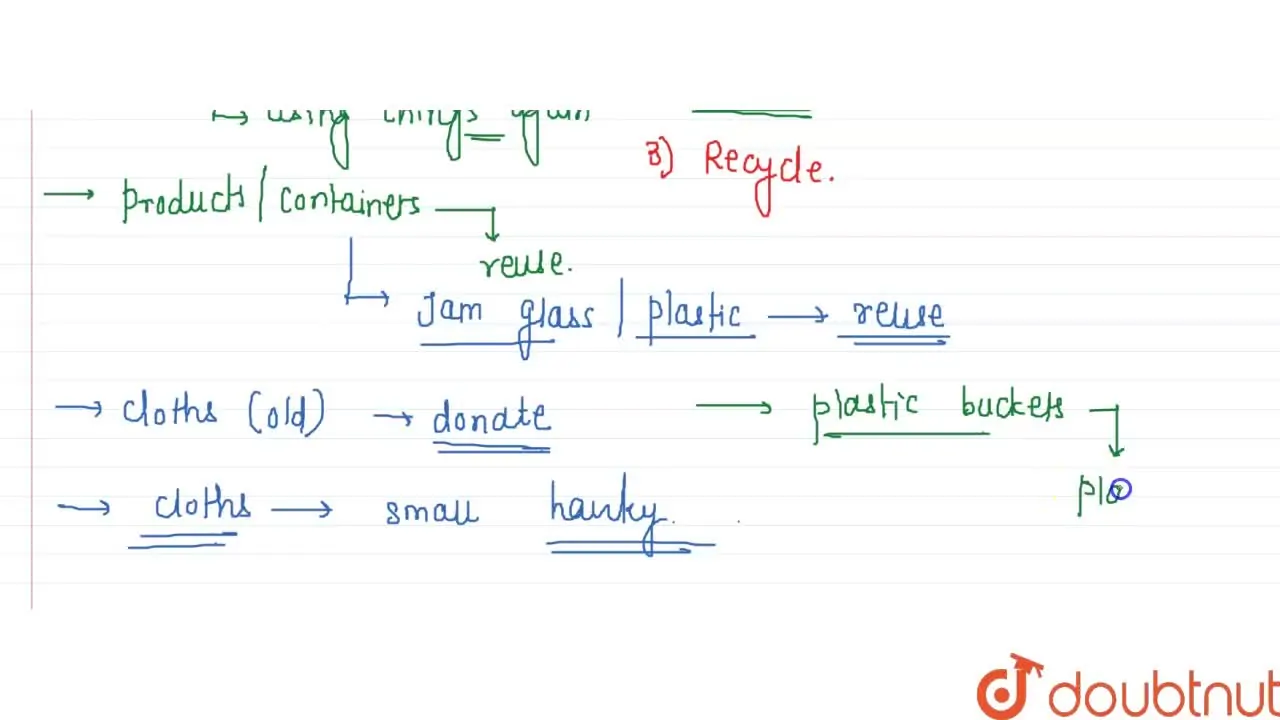 ↳ using things again
3) Recycle.
→ products/containers
reuse.
→ Jam glass | plastic → reuse
→ cloths (old) → donate
→ plastic buckets
pla
→ cloths → small hanky.
doubtnut